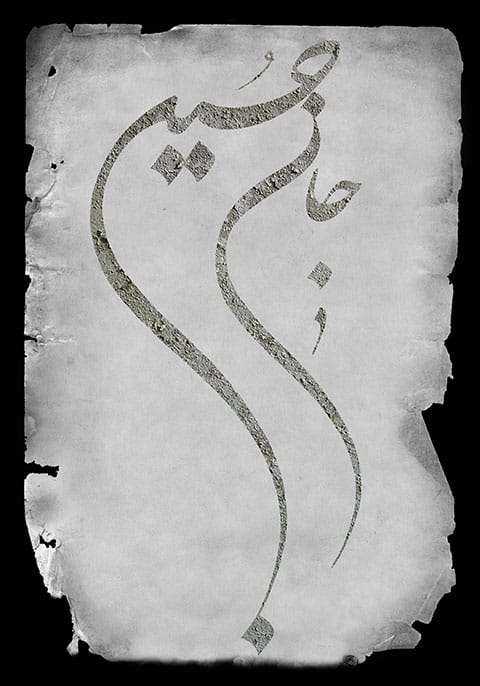 جانم حُسین